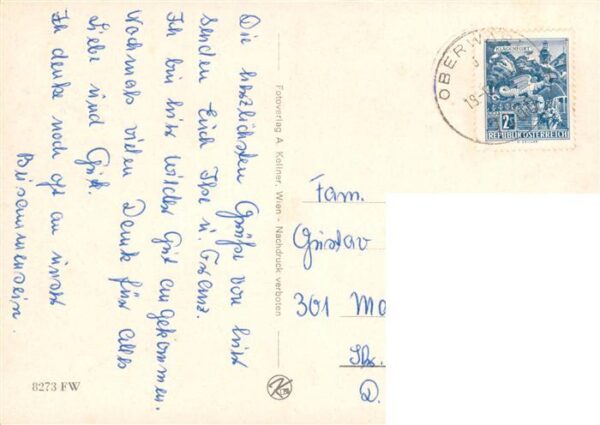 Die herzlichsten Grüße von hier
senden Euch Ilse u. Franz.
Ich bin hier wieder gut angekommen.
Nochmals vielen Dank für alles
Liebe und Gute.
Ich denke noch oft an unser
Beisammensein.
Fotoverlag A. Kellner, Wien - Nachdruck verboten
8273 FW
OBER
KLAGENFURT
2S
REPUBLIK ÖSTERREICH
Fam.
Gustav
301 Ma
D.